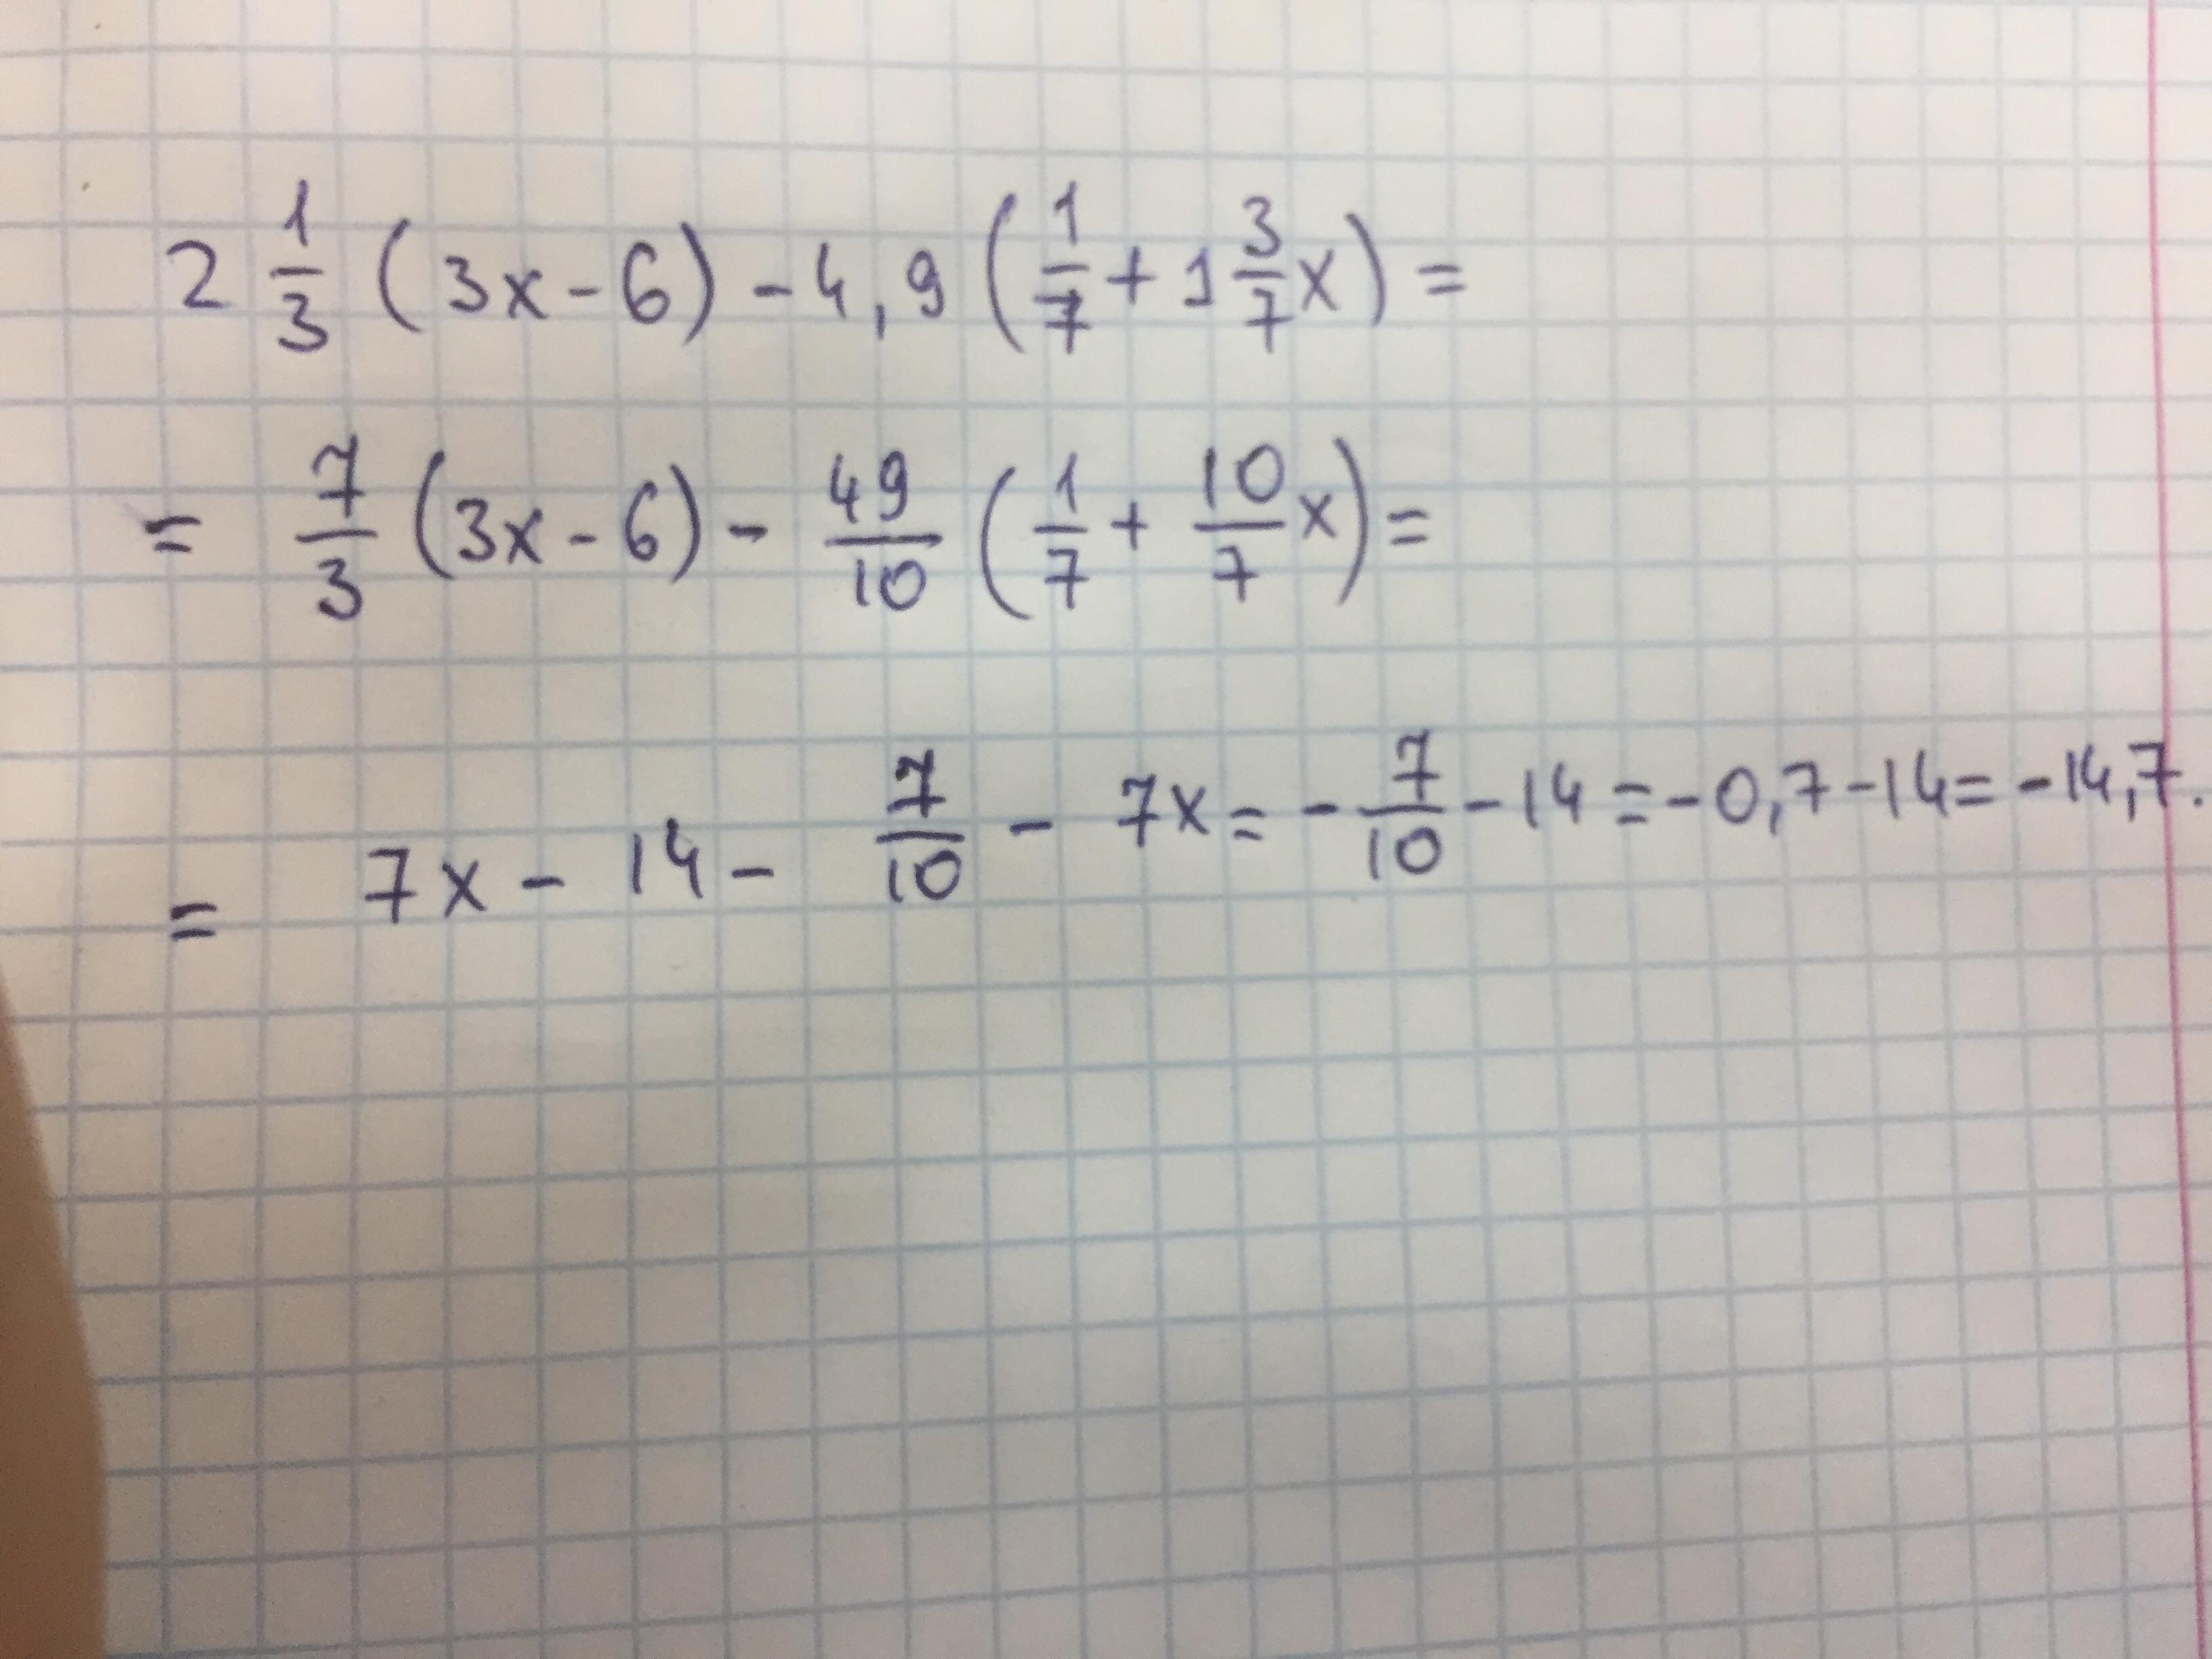 2 1/3 (3x - 6) - 4,9 (1/7 + 1 3/7 x) =
= 7/3 (3x - 6) - 49/10 (1/7 + 10/7 x) =
= 7x - 14 - 7/10 - 7x = - 7/10 - 14 = - 0,7 - 14 = - 14,7.